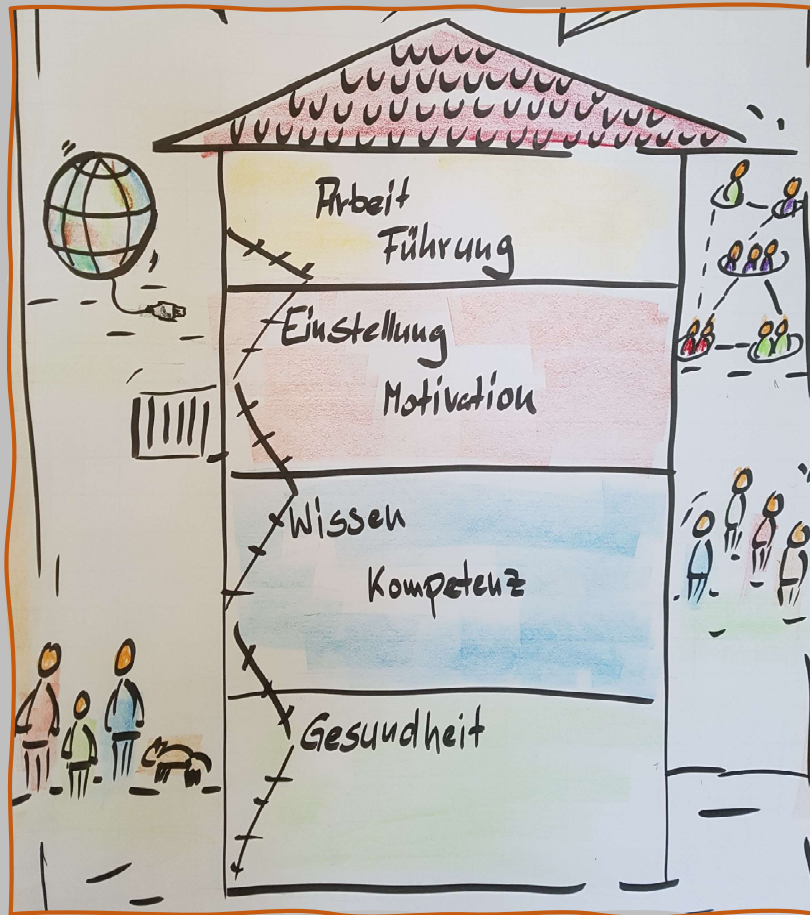 Arbeit
Führung
Einstellung
Motivation
Wissen
Kompetenz
Gesundheit